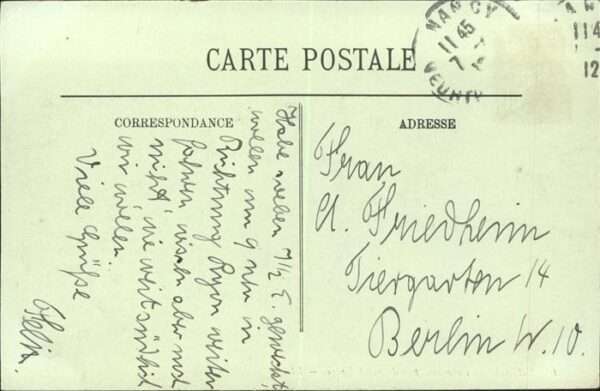 CARTE POSTALE
NANCY
11 45
7
MEURTHE
114
12
CORRESPONDANCE
ADRESSE
Habe soeben 7 1/2 T.
wollen um 9 Uhr in
Richtung weiter
fahren, wissen aber noch
nicht, wie weit
wir wollen.
Viele Grüße
Frau
A. Friedheim
Tiergarten 14
Berlin W. 10.